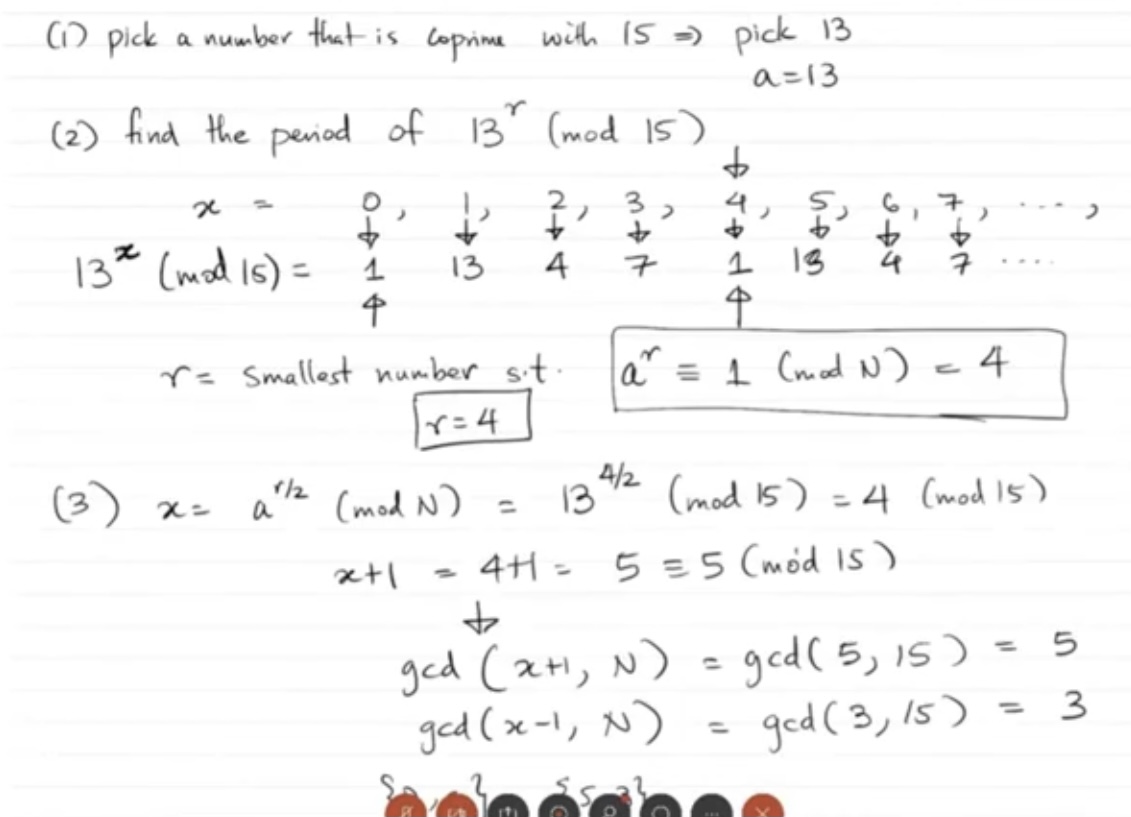 (1) pick a number that is coprime with 15 ⇒ pick 13
a=13
(2) find the period of 13^r (mod 15)
x = 0, 1, 2, 3, 4, 5, 6, 7, ....,
13^x (mod 15) = 1 13 4 7 1 13 4 7 ....
r = smallest number s.t. a^r ≡ 1 (mod N) = 4
r=4
(3) x = a^r/2 (mod N) = 13^4/2 (mod 15) = 4 (mod 15)
x+1 = 4+1 = 5 ≡ 5 (mod 15)
gcd (x+1, N) = gcd(5, 15) = 5
gcd(x-1, N) = gcd(3, 15) = 3